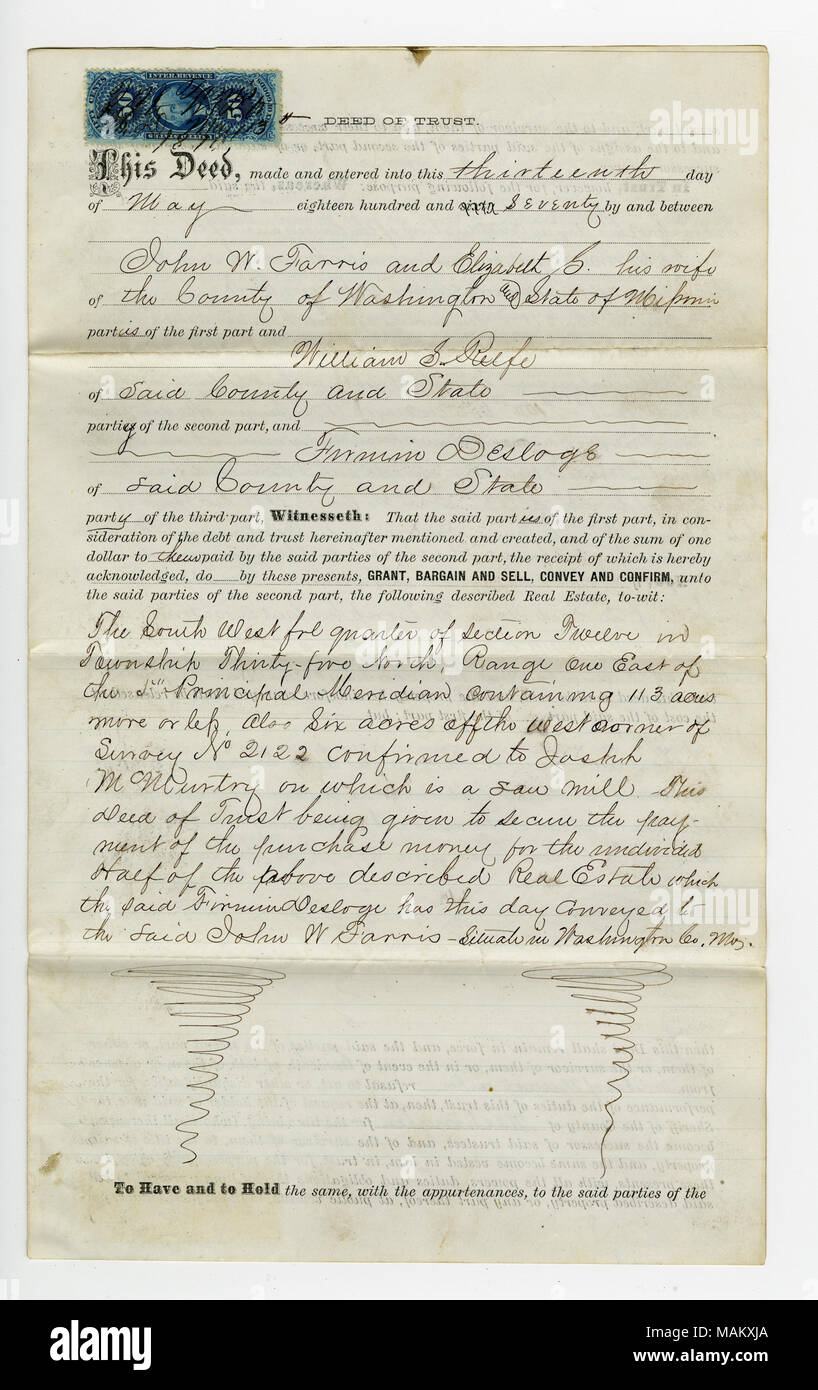 INTER. REVENUE
50 50
DEED OF TRUST.
This Deed, made and entered into this thirteenth day
of May eighteen hundred and sixty Seventy by and between
John W. Farris and Elizabeth C. his wife
of the County of Washington and State of Missouri
parties of the first part and
William S. Relfe
of said County and State
party of the second part, and
Firmin Desloge
of said County and State
party of the third part, Witnesseth: That the said parties of the first part, in con-
sideration of the debt and trust hereinafter mentioned and created, and of the sum of one
dollar to them paid by the said parties of the second part, the receipt of which is hereby
acknowledged, do by these presents, GRANT, BARGAIN AND SELL, CONVEY AND CONFIRM, unto
the said parties of the second part, the following described Real Estate, to-wit:
The South West frl quarter of section Twelve in
Township Thirty-five North, Range One East of
the 5th Principal Meridian containing 113 acres
more or less, Also Six acres off the west corner of
Survey No 2122 confirmed to Joseph
McMurtry on which is a saw mill - This
Deed of Trust being given to secure the pay-
ment of the purchase money for the undivided
Half of the above described Real Estate which
the said Firmin Desloge has this day conveyed to
the said John W Farris - Situate in Washington Co. Mo.
To Have and to Hold the same, with the appurtenances, to the said parties of the
alamy
Image ID: MAKXJA
www.alamy.com